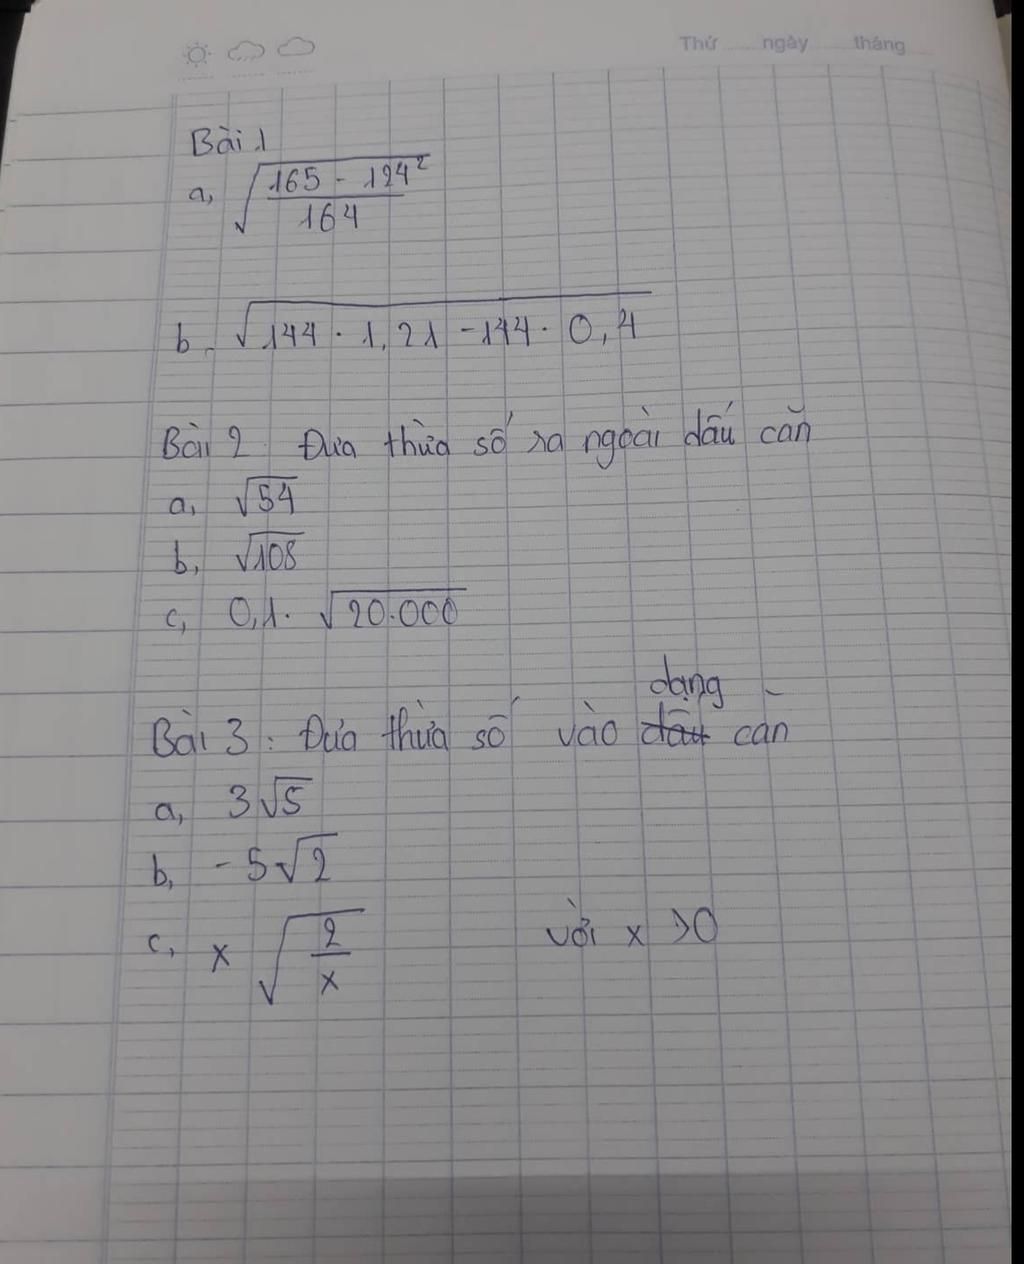 Thứ ngày tháng
Bài 1
a, √((165 - 124²)/164)
b. √(144 . 1,21 - 144 . 0,4)
Bài 2 Đưa thừa số ra ngoài dấu căn
a, √54
b, √108
c, 0,1. √20.000
dạng
Bài 3: Đưa thừa số vào dấu căn
a, 3√5
b, -5√2
c, x √(2/x) với x >0